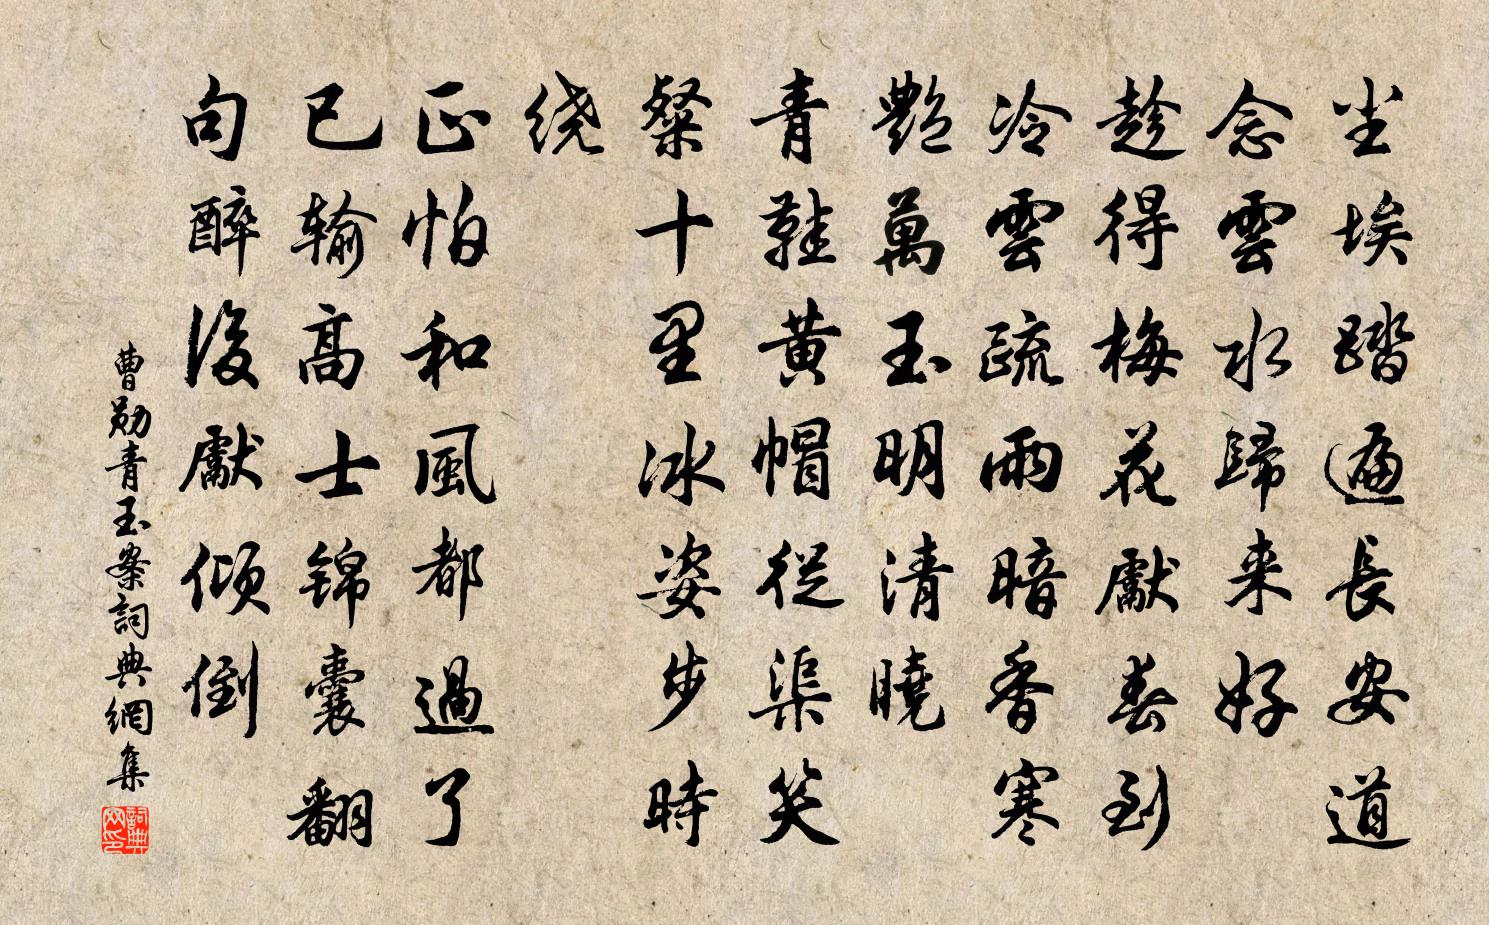 尘埃踏遍長安道
念雲水歸来好
趁得梅花獻春到
冷雲疏雨暗香寒
艷萬玉明清曉
青鞋黄帽從渠笑
粲十里冰姿步時
绕
正怕和風都過了
已输高士锦囊翻
句醉後獻倾倒
曹勛青玉案詞典網集
詞典网印